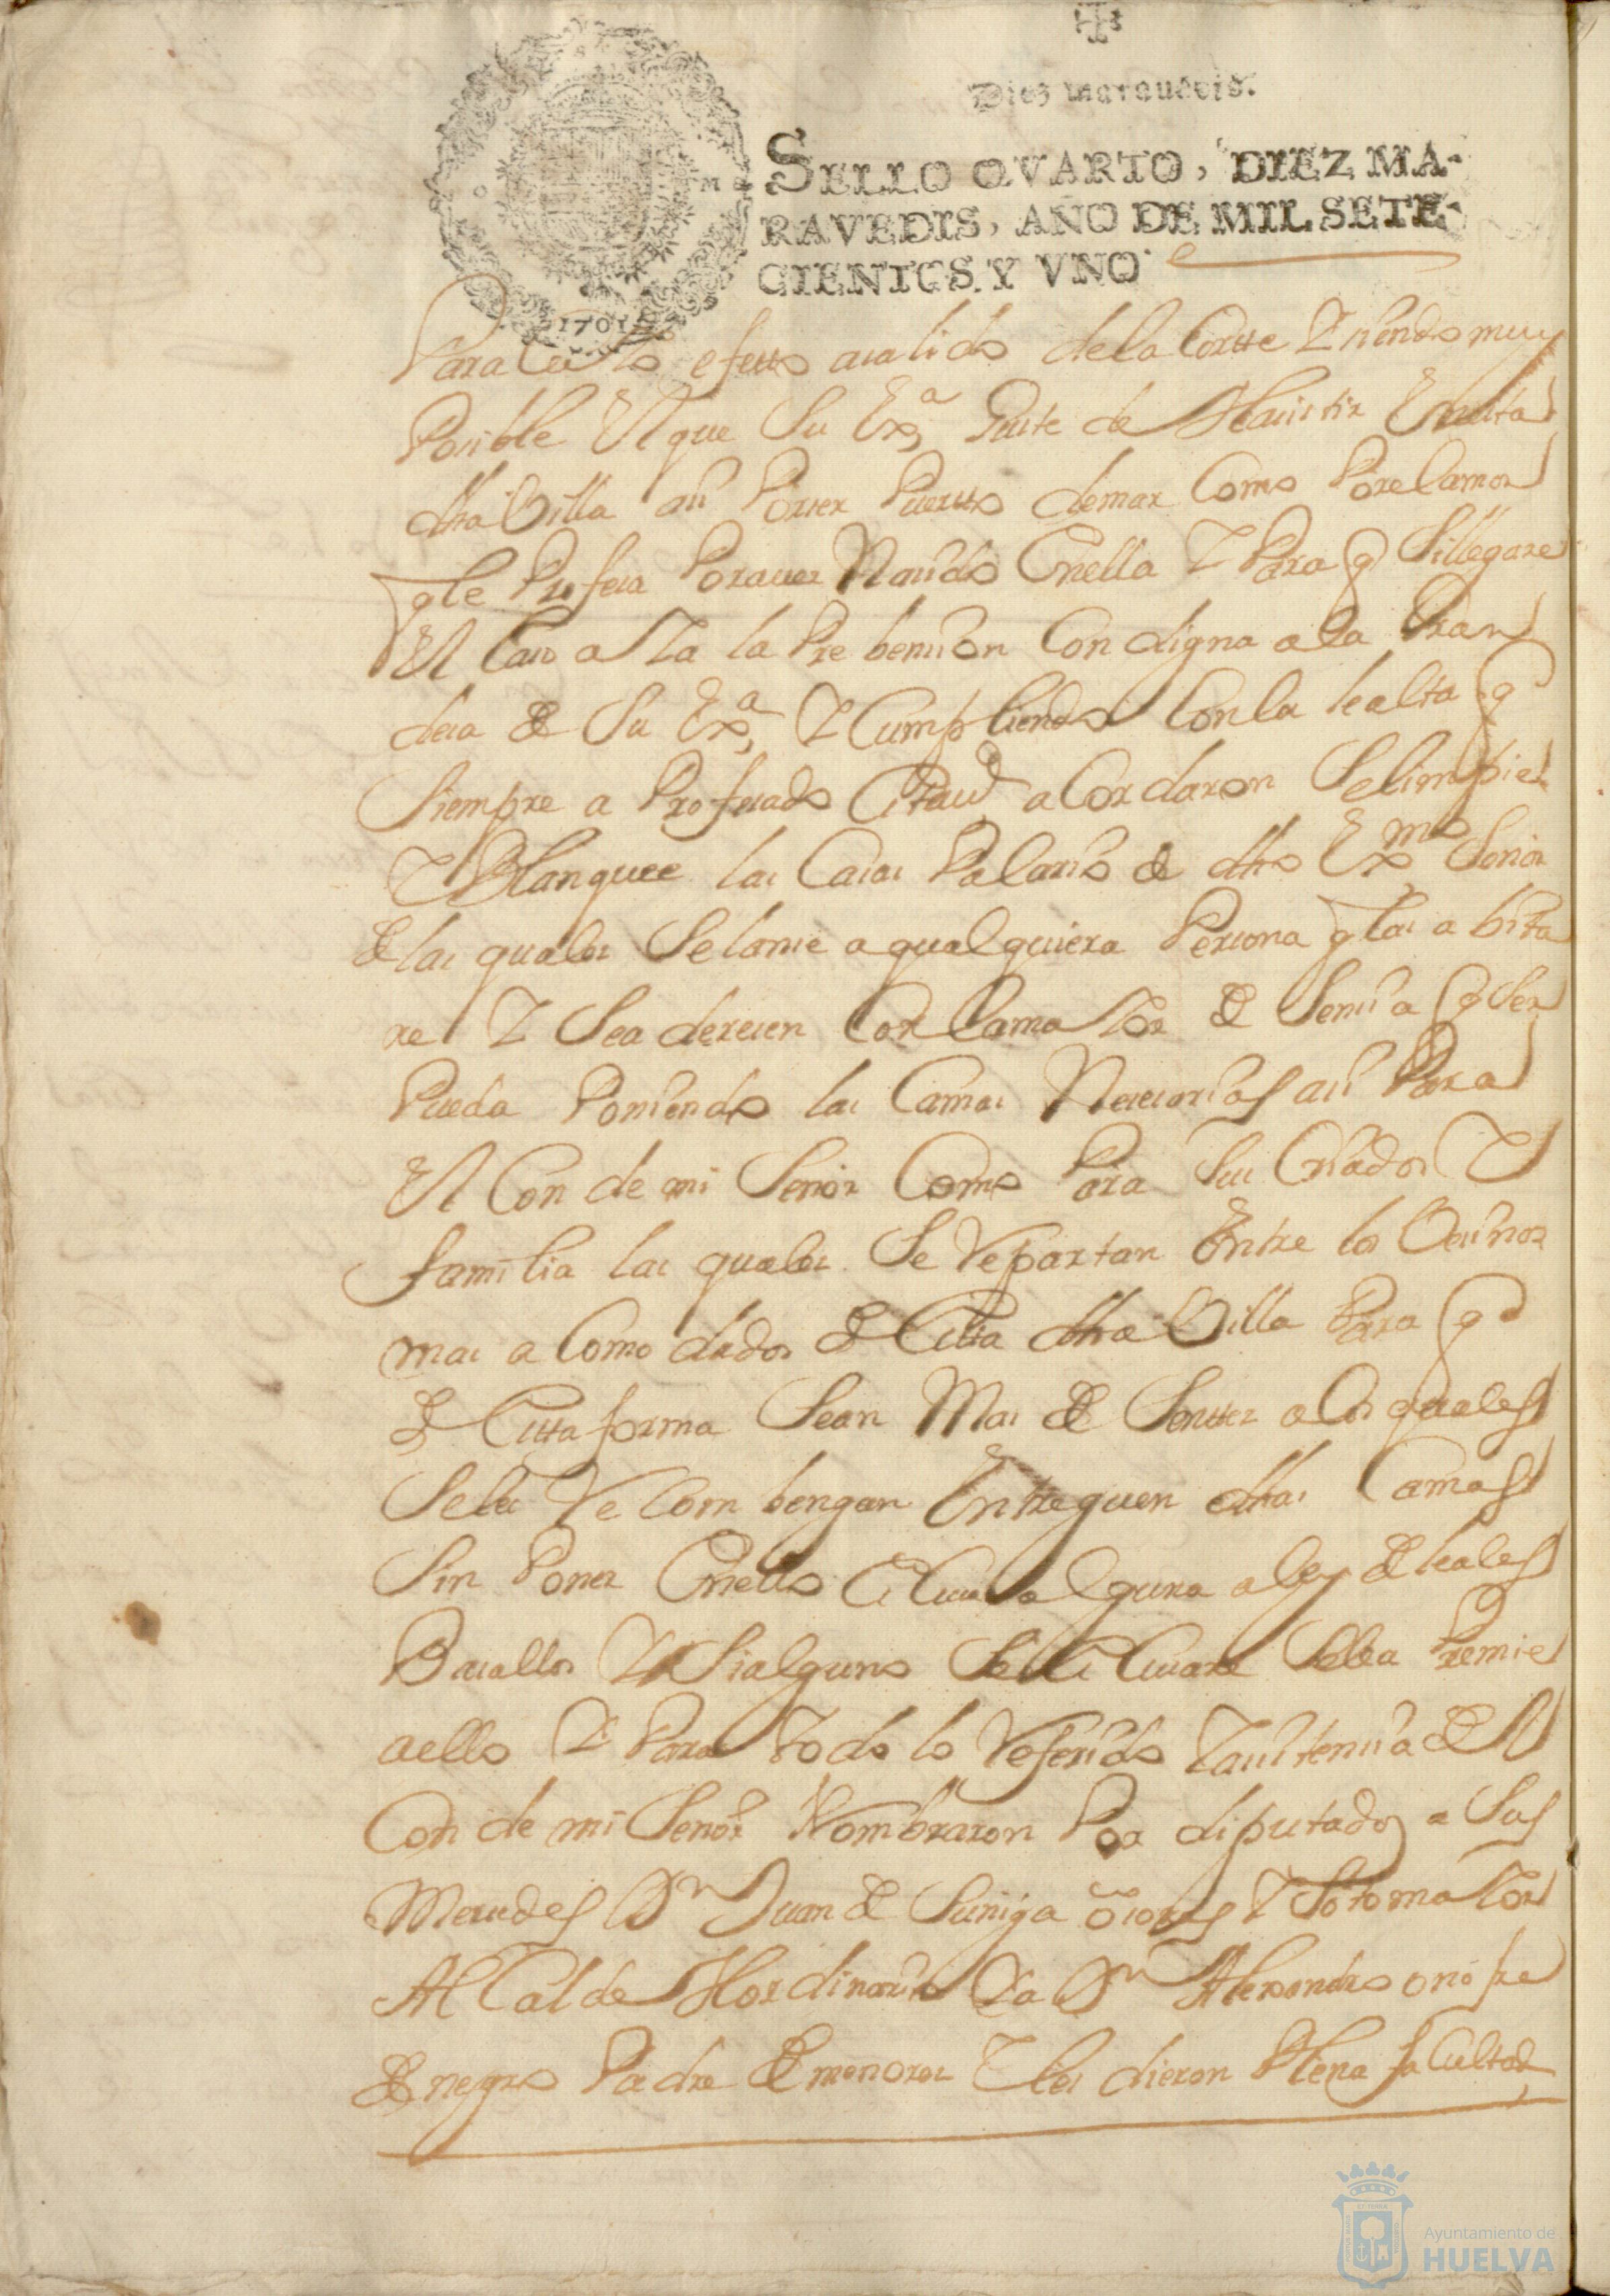 Diez maravedis.
SELLO QVARTO, DIEZ MA-
RAVEDIS, AÑO DE MIL SETE-
CIENTOS. Y VNO.
1701
Para efetto a salido de la Cortte Y siendo muy
Posible El que Su Exª, Guste de Hasistir En esta
dha Villa asi Por ser Puertto de mar Como Por el amor
q le Profesa Por aver Nacido En ella Y Para q Si llegare
El Caso aYa la Prebencion Condigna a la Gran
desa de Su Exª, Y Cumpliendo Con la lealta q
Siempre a Profesado Esta vª aCordaron Se limpie
Y Blanquee las Casas Palacio de dho Exmo Señor
de las quales Se lanse a qualquiera Persona q las abita
re Y Se aderesen Con la maYor desencia q Ser
Pueda Poniendo las Camas Necesarias asi Para
El Conde mi Señor Como Para Sus Criados Y
familia las quales Se Repartan Entre los Vecinos
mas aComodados de Esta dha Villa Para q
de Esta forma Sean Mas desentes a los quales
Se les ReCombengan Entreguen dhas Camas
Sin Poner En ello EsCusa alguna a ley de leales
Basallos Y Si alguno Se EsCusare Se le apremie
a ello Y Para todo lo Referido Y asistencia del
Conde mi Señor Nombraron Por diputados a Sus
Mercedes Dn Juan de Suñiga Y SotomaYor
AlCalde Hordinario Y a Dn Alexandro onofre
de negro Padre de menores Y les dieron Plena faCultad
Ayuntamiento de
HUELVA